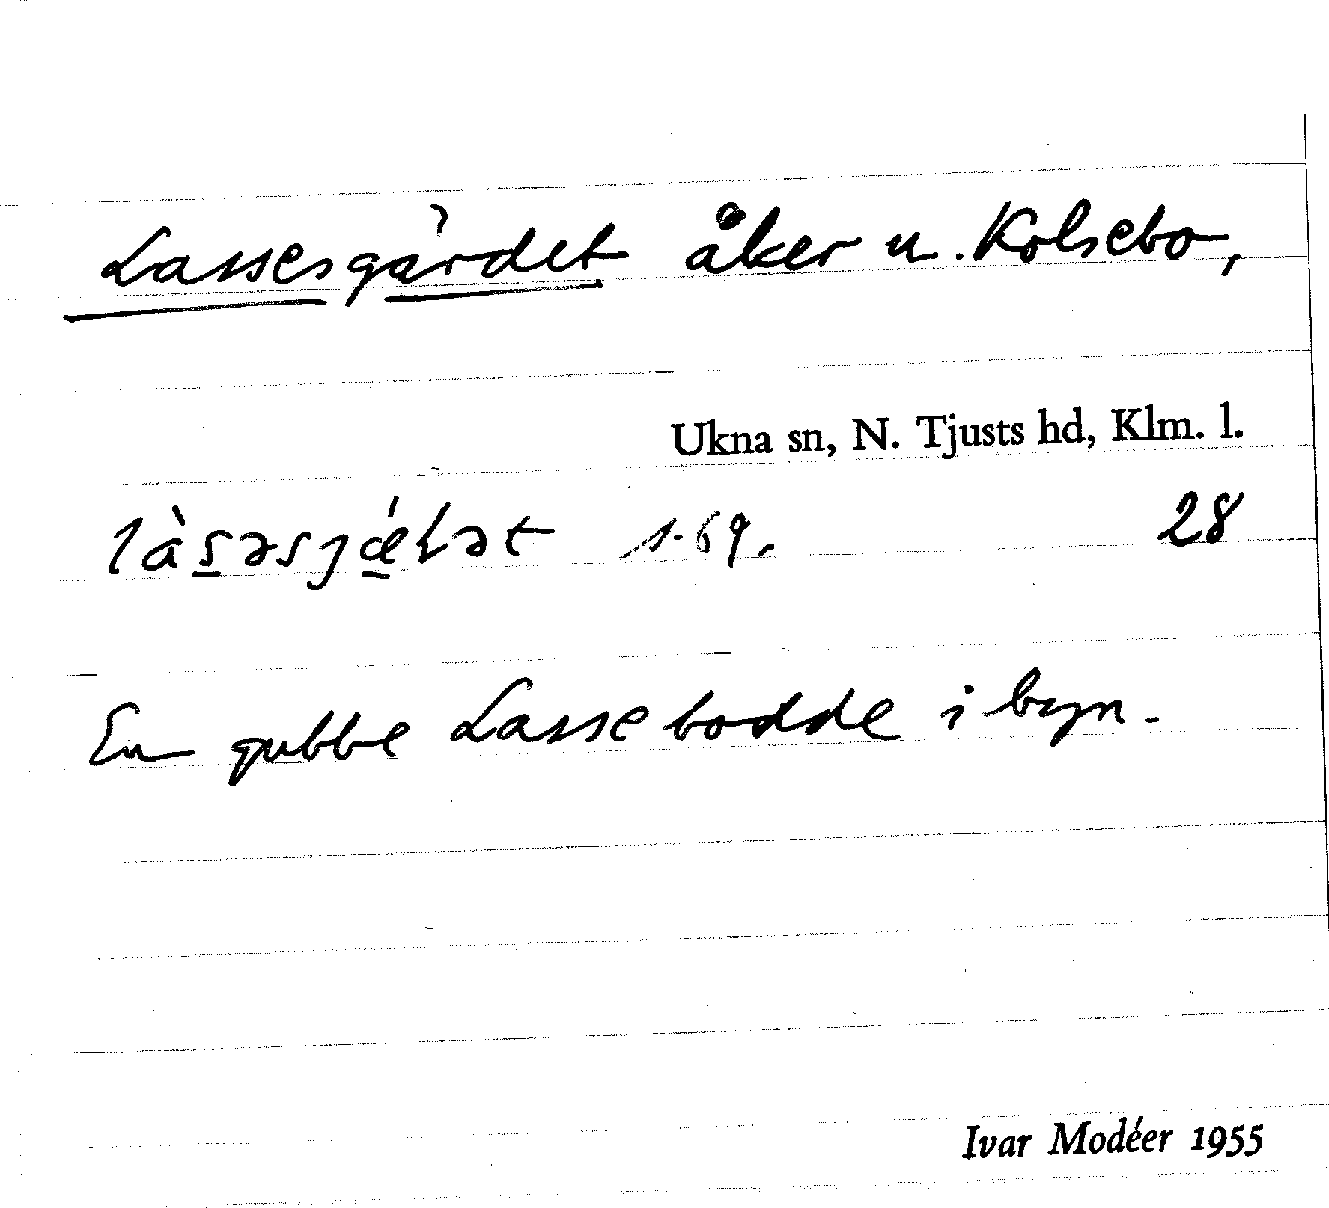 Lassesgärdet åker u. Kolsebo,
Ukna sn, N. Tjusts hd, Klm. l.
s. 69. 28
En gubbe Lasse bodde i byn.
Ivar Modéer 1955